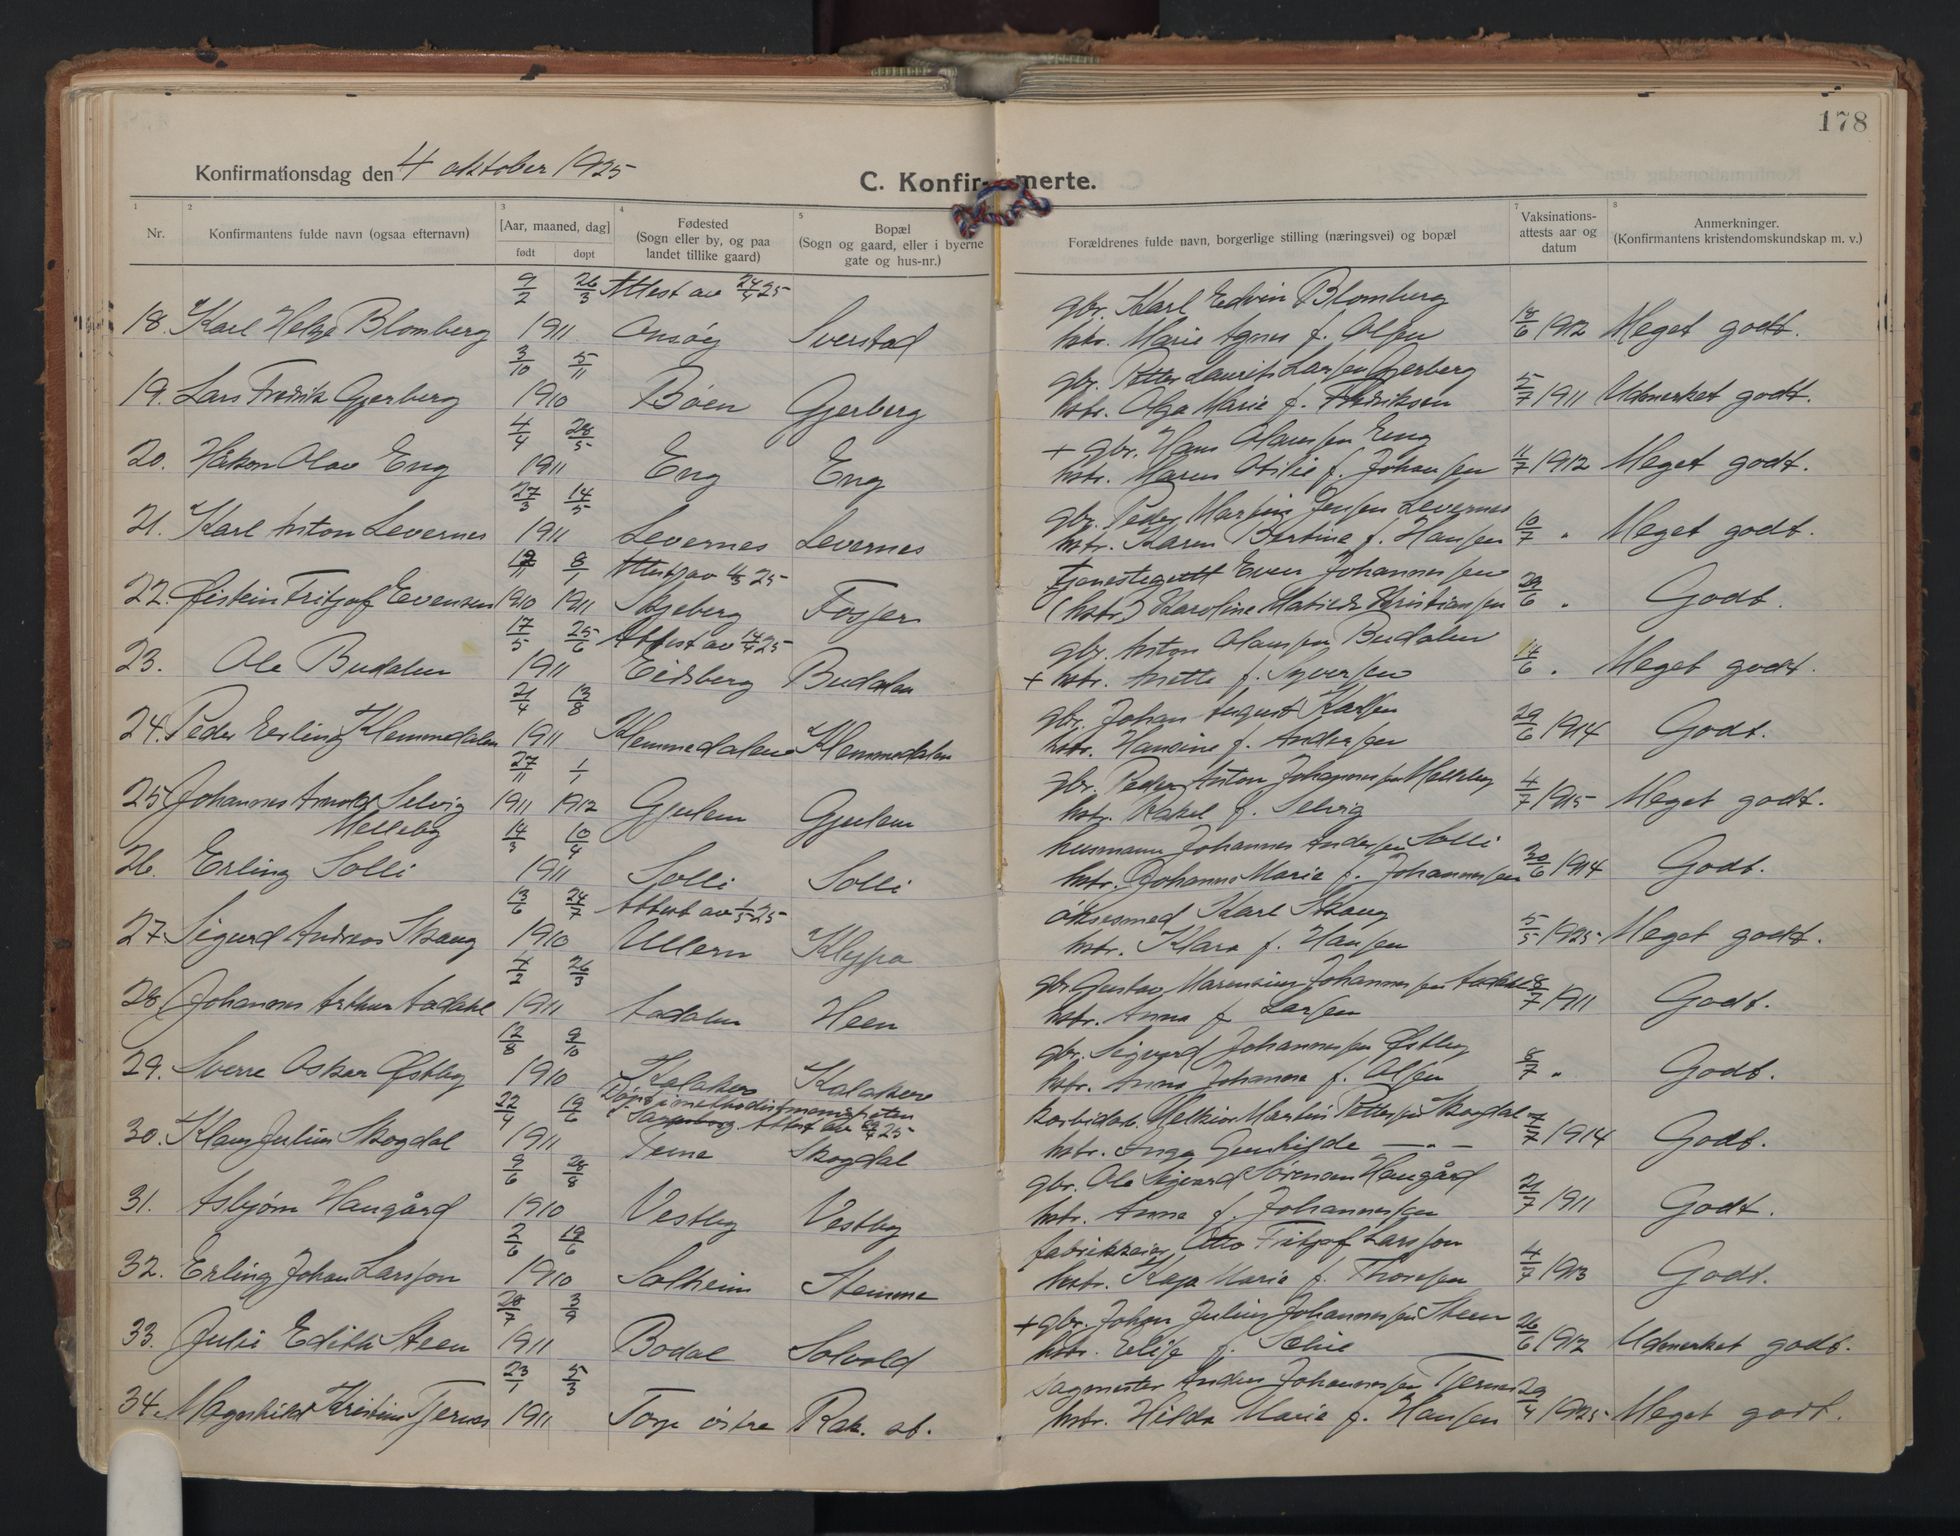 178
Konfirmationsdag den 4 oktober 1925
C. Konfir- merte.
1 2 3 4 5 7 8
Nr.
Konfirmantens fulde navn (ogsaa efternavn)
[Aar, maaned, dag]
født døpt
Fødested
(Sogn eller by, og paa
landet tillike gaard)
Bopæl
(Sogn og gaard, eller i byerne
gate og hus-nr.)
Forældrenes fulde navn, borgerlige stilling (næringsvei) og bopæl
Vaksinations-
attests aar og
datum
Anmerkninger.
(Konfirmantens kristendomskundskap m. v.)
9/2 26/3 Attest av 24/4 25 gbr. Karl Edvin Blomberg
18. Karl Helge Blomberg 1911 Onsøy Sverstad hstr. Marie Agnes f. Olsen 18/6 1912 Meget godt.
3/10 5/11 gbr. Petter Laurits Larsen Gjerberg
19. Lars Fredrik Gjerberg 1910 Bøen Gjerberg hstr. Olga Marie f. Fredriksen 5/7 1911 Udmerket godt.
4/4 28/5 + gbr. Hans Olaussen Eng
20. Håkon Olav Eng 1911 Eng Eng hstr. Maren Otilie f. Johansen 11/7 1912 Meget godt.
27/3 14/5 gbr. Peder Martin Jensen Levernes
21. Karl Anton Levernes 1911 Levernes Levernes hstr. Karen Bertine f. Hansen 10/7 " Meget godt.
8/1 Attest av 4/3 25 Tjenestegutt Even Johannessen
22. Øistein Fritjof Evensen 1910 1911 Skjeberg Fosser (hstr.) Karoline Matilde Kristiansen 29/6 " Godt.
17/5 25/6 Attest av 14/4 25 gbr. Anton Olaussen Budalen
23. Ole Budalen 1911 Eidsberg Budalen + hstr. Anette f. Syversen 14/6 " Meget godt.
21/4 13/8 gbr. Johan August Karlsen
24. Peder Erling Klemmedalen 1911 Klemmedalen Klemmedalen hstr. Hansine f. Andersen 29/6 1914 Godt.
27/11 1/1 gbr. Peder Anton Johannessen Melleby
25. Johannes Arnold Selvig 1911 1912 Gjulem Gjulem hstr. Rakel f. Selvig 4/7 1915 Meget godt.
Melleby 14/3 10/4 husmann Johannes Andersen Solli
26. Erling Solli 1911 Solli Solli hstr. Johanne Marie f. Johannessen 30/6 1914 Godt.
13/6 24/7 Attest av 1/5 25 øksesmed Karl Skaug
27. Sigurd Andreas Skaug 1910 Ullern Klypa hstr. Klara f. Hansen 5/5 1925 Meget godt.
4/2 26/3 gbr. Gustav Marensius Johannessen
28. Johannes Arthur Aadalen 1911 Aadalen Heen hstr. Anna f. Larsen 8/7 1911 Godt.
12/8 9/10 gbr. Sigvard Johannessen Østby
29. Sverre Oskar Østby 1910 Kalakere Kalakere hstr. Anna Johanne f. Olsen 8/7 " Godt.
22/4 19/6 Døpt i methodistmenigheten Melkior Martin Pettersen Skogdal
Sarpsborg. Attest av 25
30. Klaus Julius Skogdal 1911 Tune Skogdal hstr. Inga Gunhilde — " — 1914 Godt.
9/6 28/8 gbr. Ole Sigvard Sørensen Haugård
31. Asbjørn Haugård 1910 Vestby Vestby hstr. Anna f. Johannessen 21/7 1911 Godt.
2/6 19/6 fabrikkeier Otto Fritjof Larsson
32. Erling Johan Larsson 1910 Solheim Stemme hstr. Kaja Marie f. Thoresen 4/7 1913 Godt.
28/7 3/9 + gbr. Johan Julius Johannessen Steen
33. Juli Edith Steen 1911 Bodal Solvold hstr. Elise f. Sælie 26/6 1912 Udmerket godt.
23/1 5/3 Sagmester Anders Johannessen Tjernes
34. Magnhild Kristine Tjernes 1911 Torp østre Rak. st. hstr. Hilda Marie f. Hansen 29/4 1925 Meget godt.